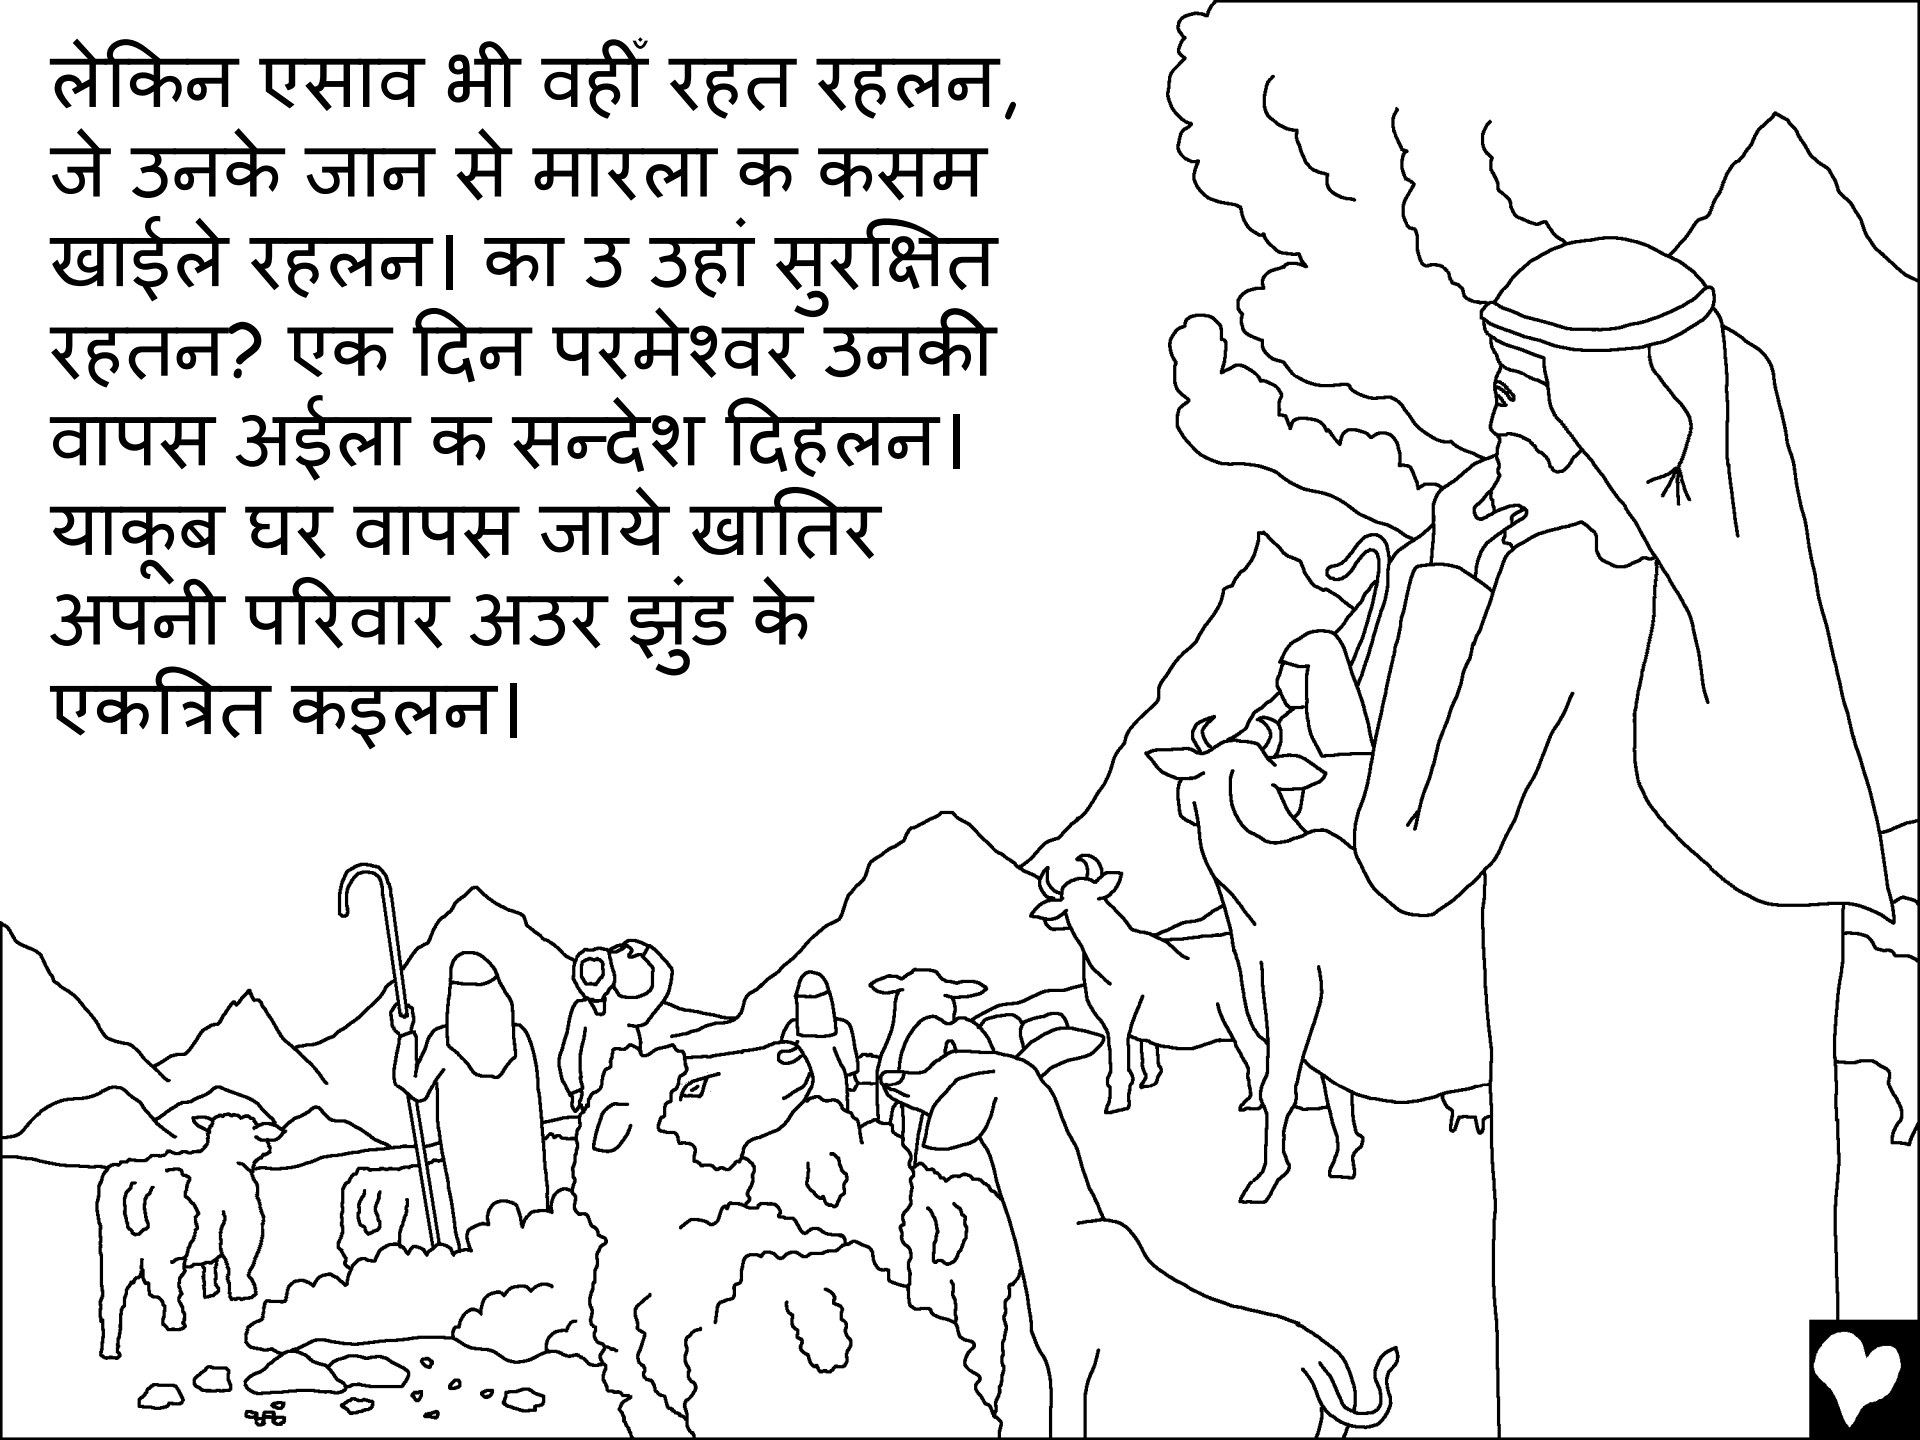 लेकिन एसाव भी वहीँ रहत रहलन,
जे उनके जान से मारला क कसम
खाईले रहलन। का उ उहां सुरक्षित
रहतन? एक दिन परमेश्वर उनकी
वापस अईला क सन्देश दिहलन।
याकूब घर वापस जाये खातिर
अपनी परिवार अउर झुंड के
एकत्रित कइलन।